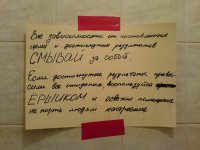 Вне зависимости от поставленных
цели и достигнутых результатов
СМЫВАЙ за собой.
Если достигнутые результаты превы-
сили все ожидания, воспользуйся
ЁРШИКОМ и освежи помещение
не порть людям настроение